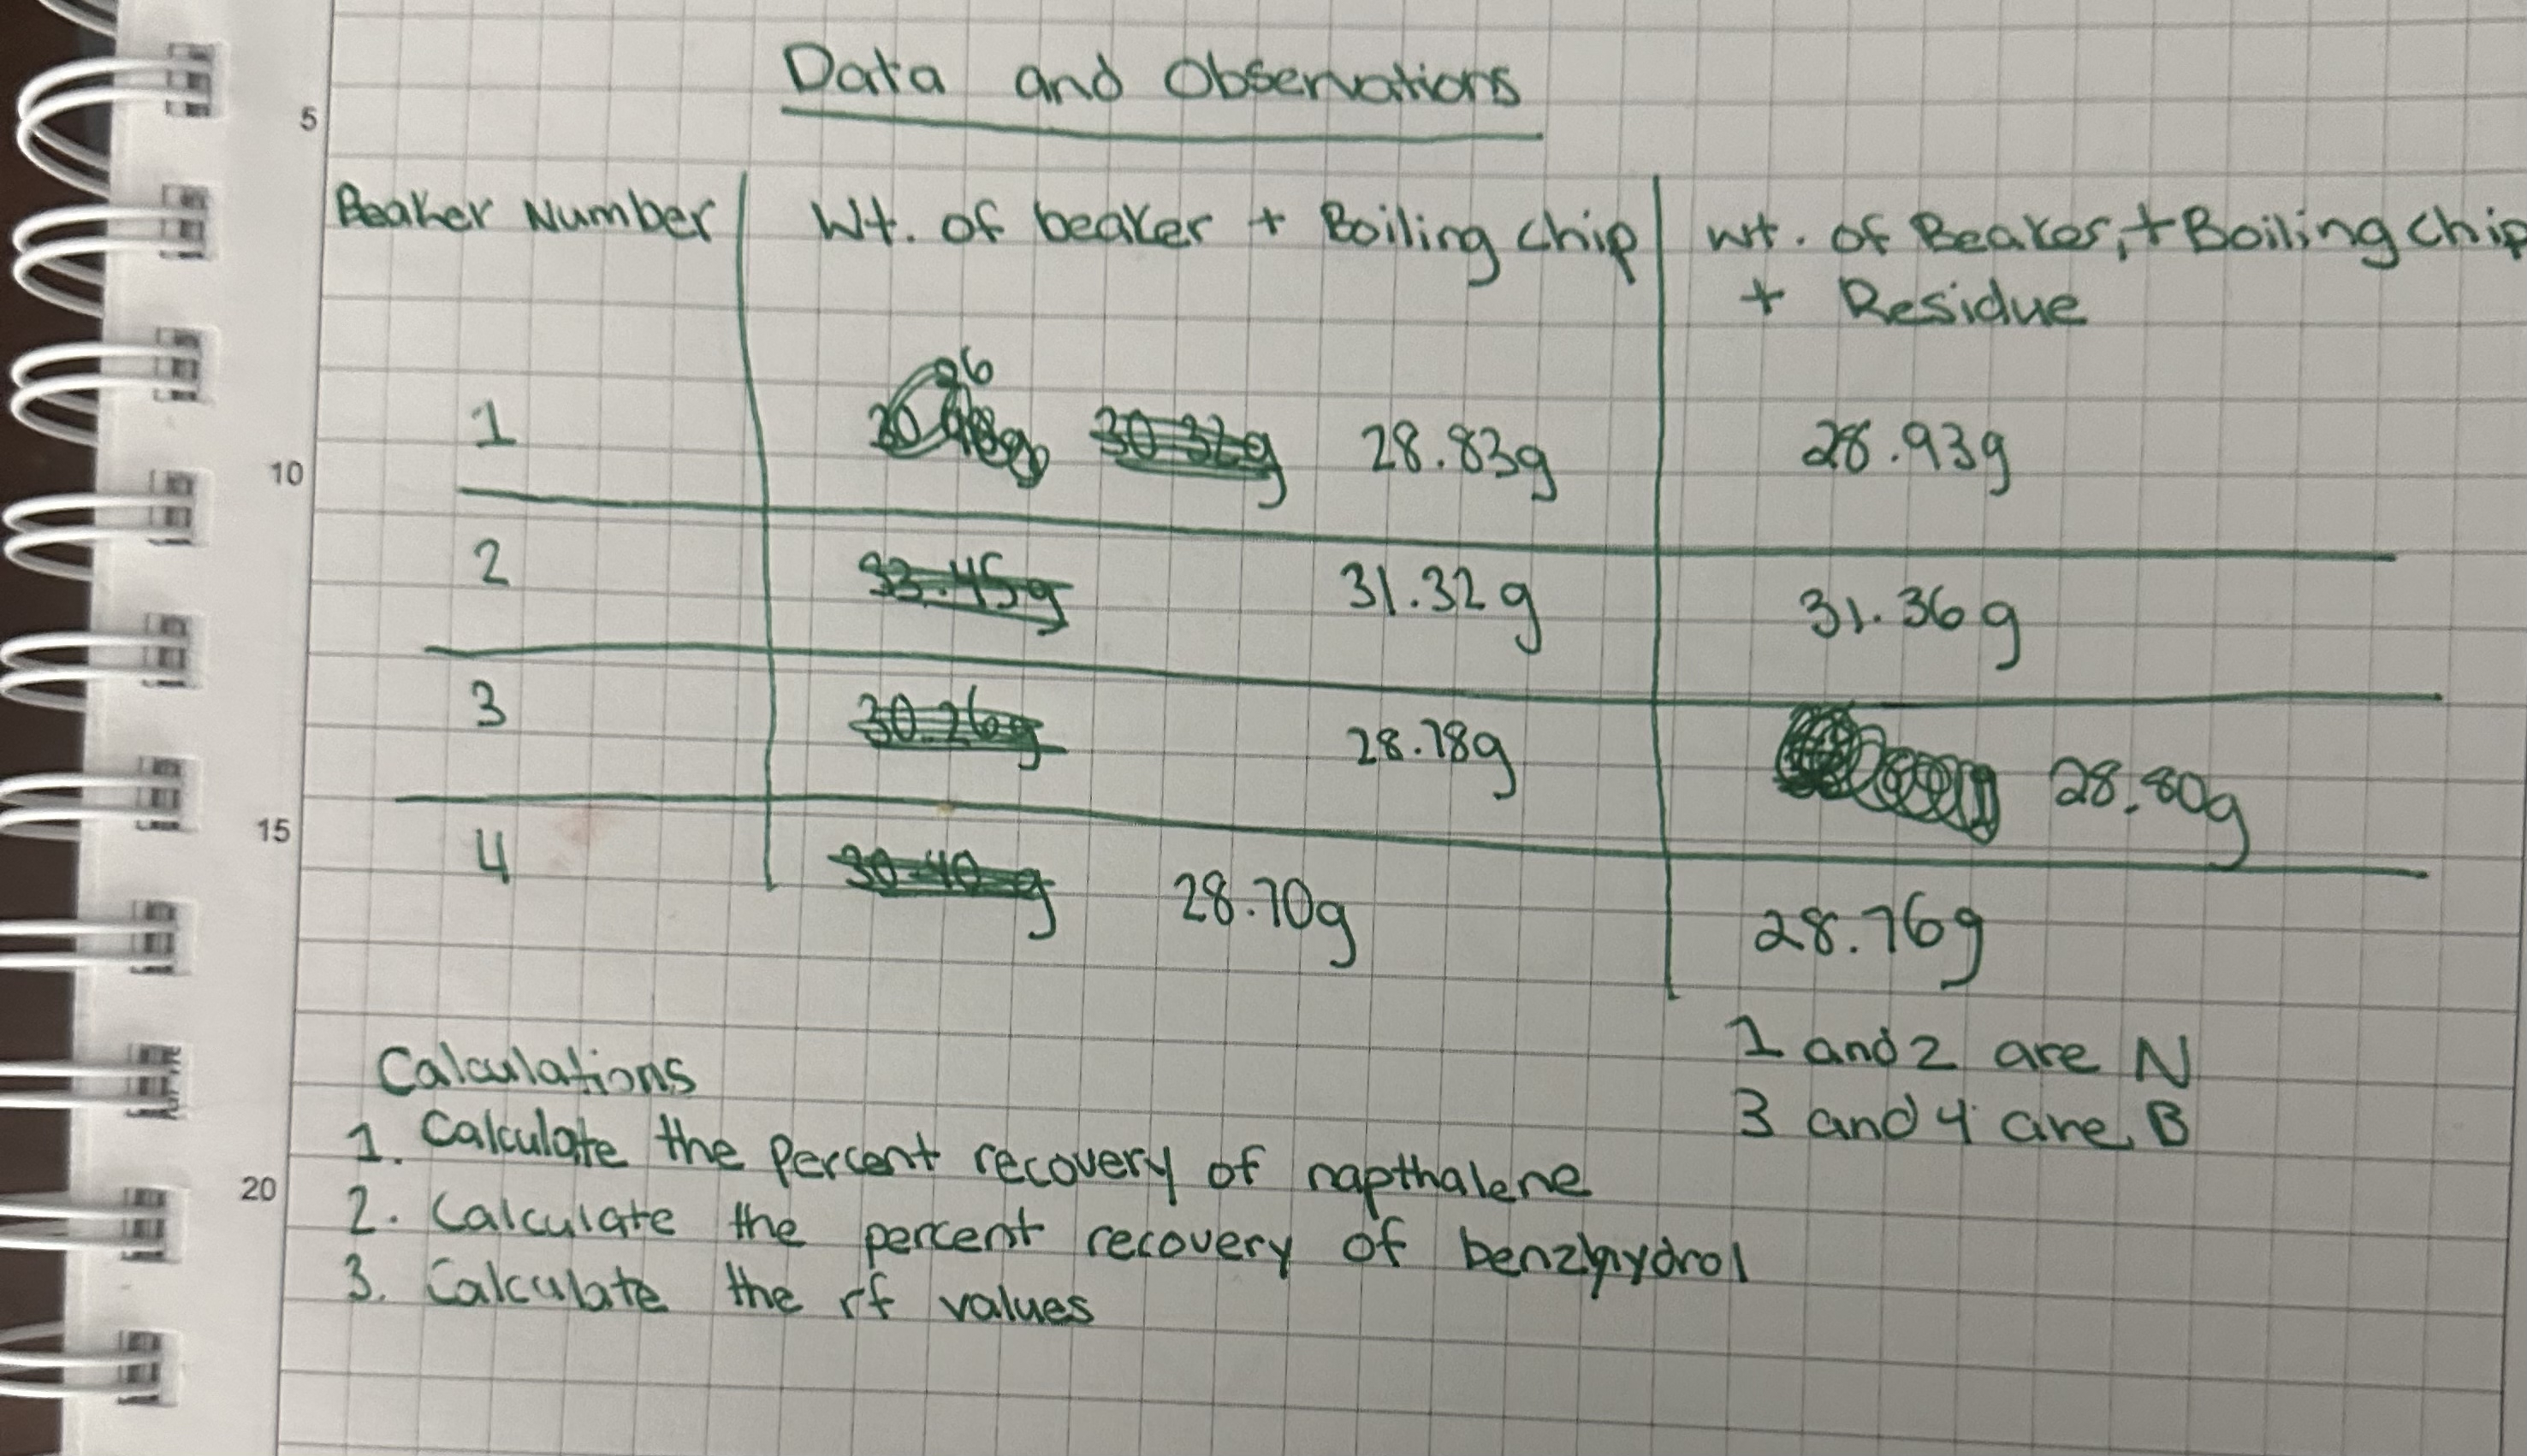 Data and Observations
5
Beaker Number | Wt. of beaker + Boiling chip | wt. of Beaker, + Boiling chip
+ Residue
96
1 30.32g 28.83g 28.93g
10
2 33.45g 31.32g 31.36g
3 30.26g 28.78g 28.80g
15
4 30.40g 28.70g 28.76g
1 and 2 are N
3 and 4 are B
Calculations
1. Calculate the Percent recovery of napthalene
20
2. Calculate the percent recovery of benzhydrol
3. Calculate the rf values